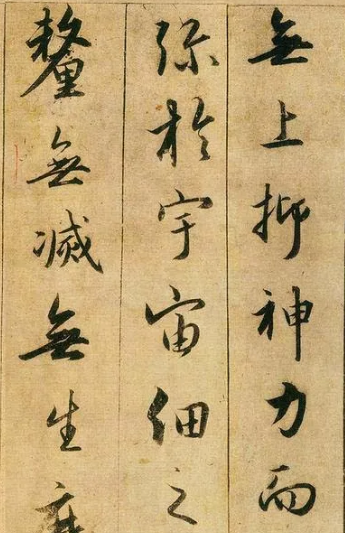 無上抑神力而
弥於宇宙細之
釐無滅無生